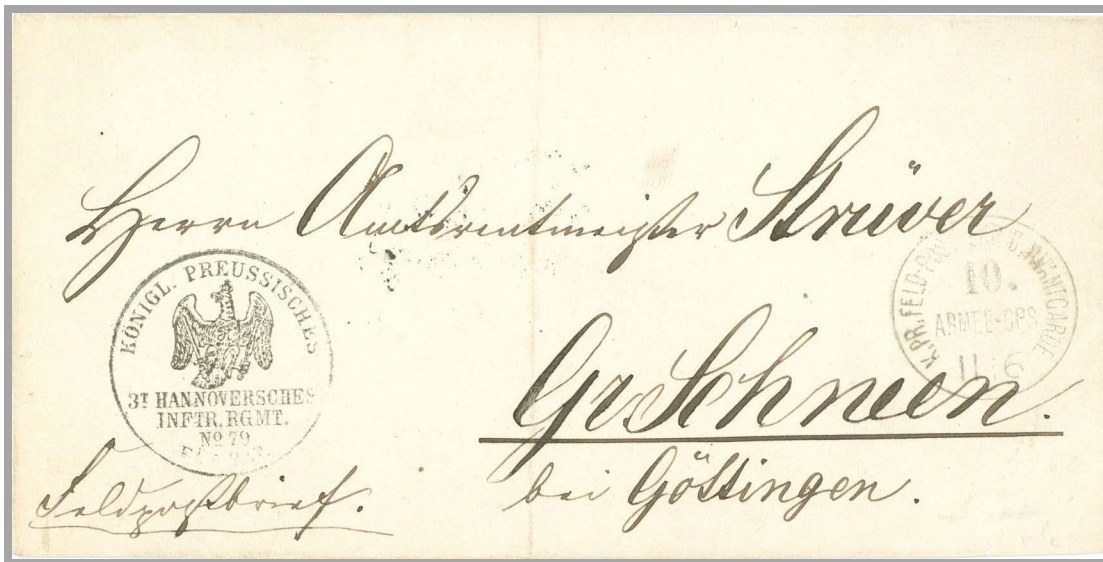 Herrn Amtsrentmeister Strüver
KÖNIGL. PREUSSISCHES
3T HANNOVERSCHES
INFTR. RGMT.
No 79
K. PR. FELD-POST AVANTGARDE
10.
ARMEE-CPS
11 6
Gr Schneen.
bei Göttingen.
Feldpostbrief.